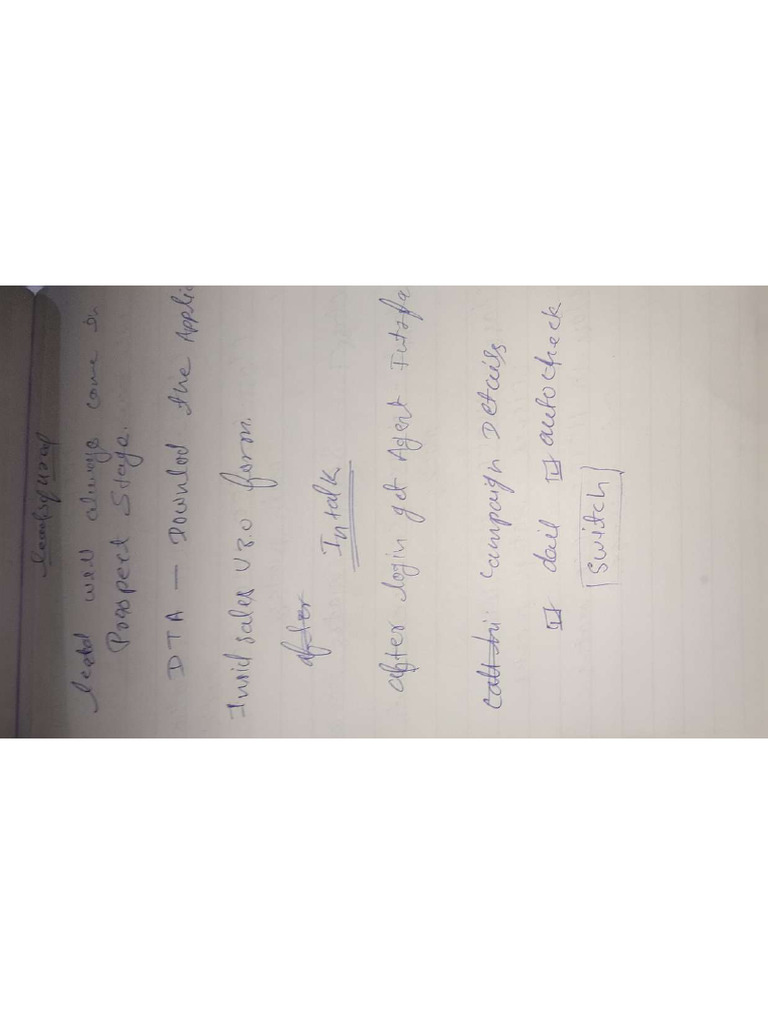 leadsquared
lead will always come in
Prospect Stage.
DTA — Downlod the Applic
Insid sales V3.0 form.
after
Intalk
after login get Agent Intafa
campaign Details
dail autocheck
Switch